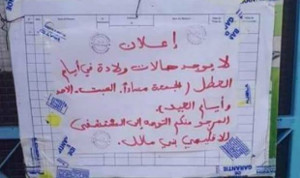 إعلان
لا يوجد حالات ولادة في أيام
العطل (الجمعة مساءاً، السبت، الاحد
وأيام العيد).
المرجو منكم التوجه إلى المستشفى
الاقليمي بني ملال.
GARANTIE